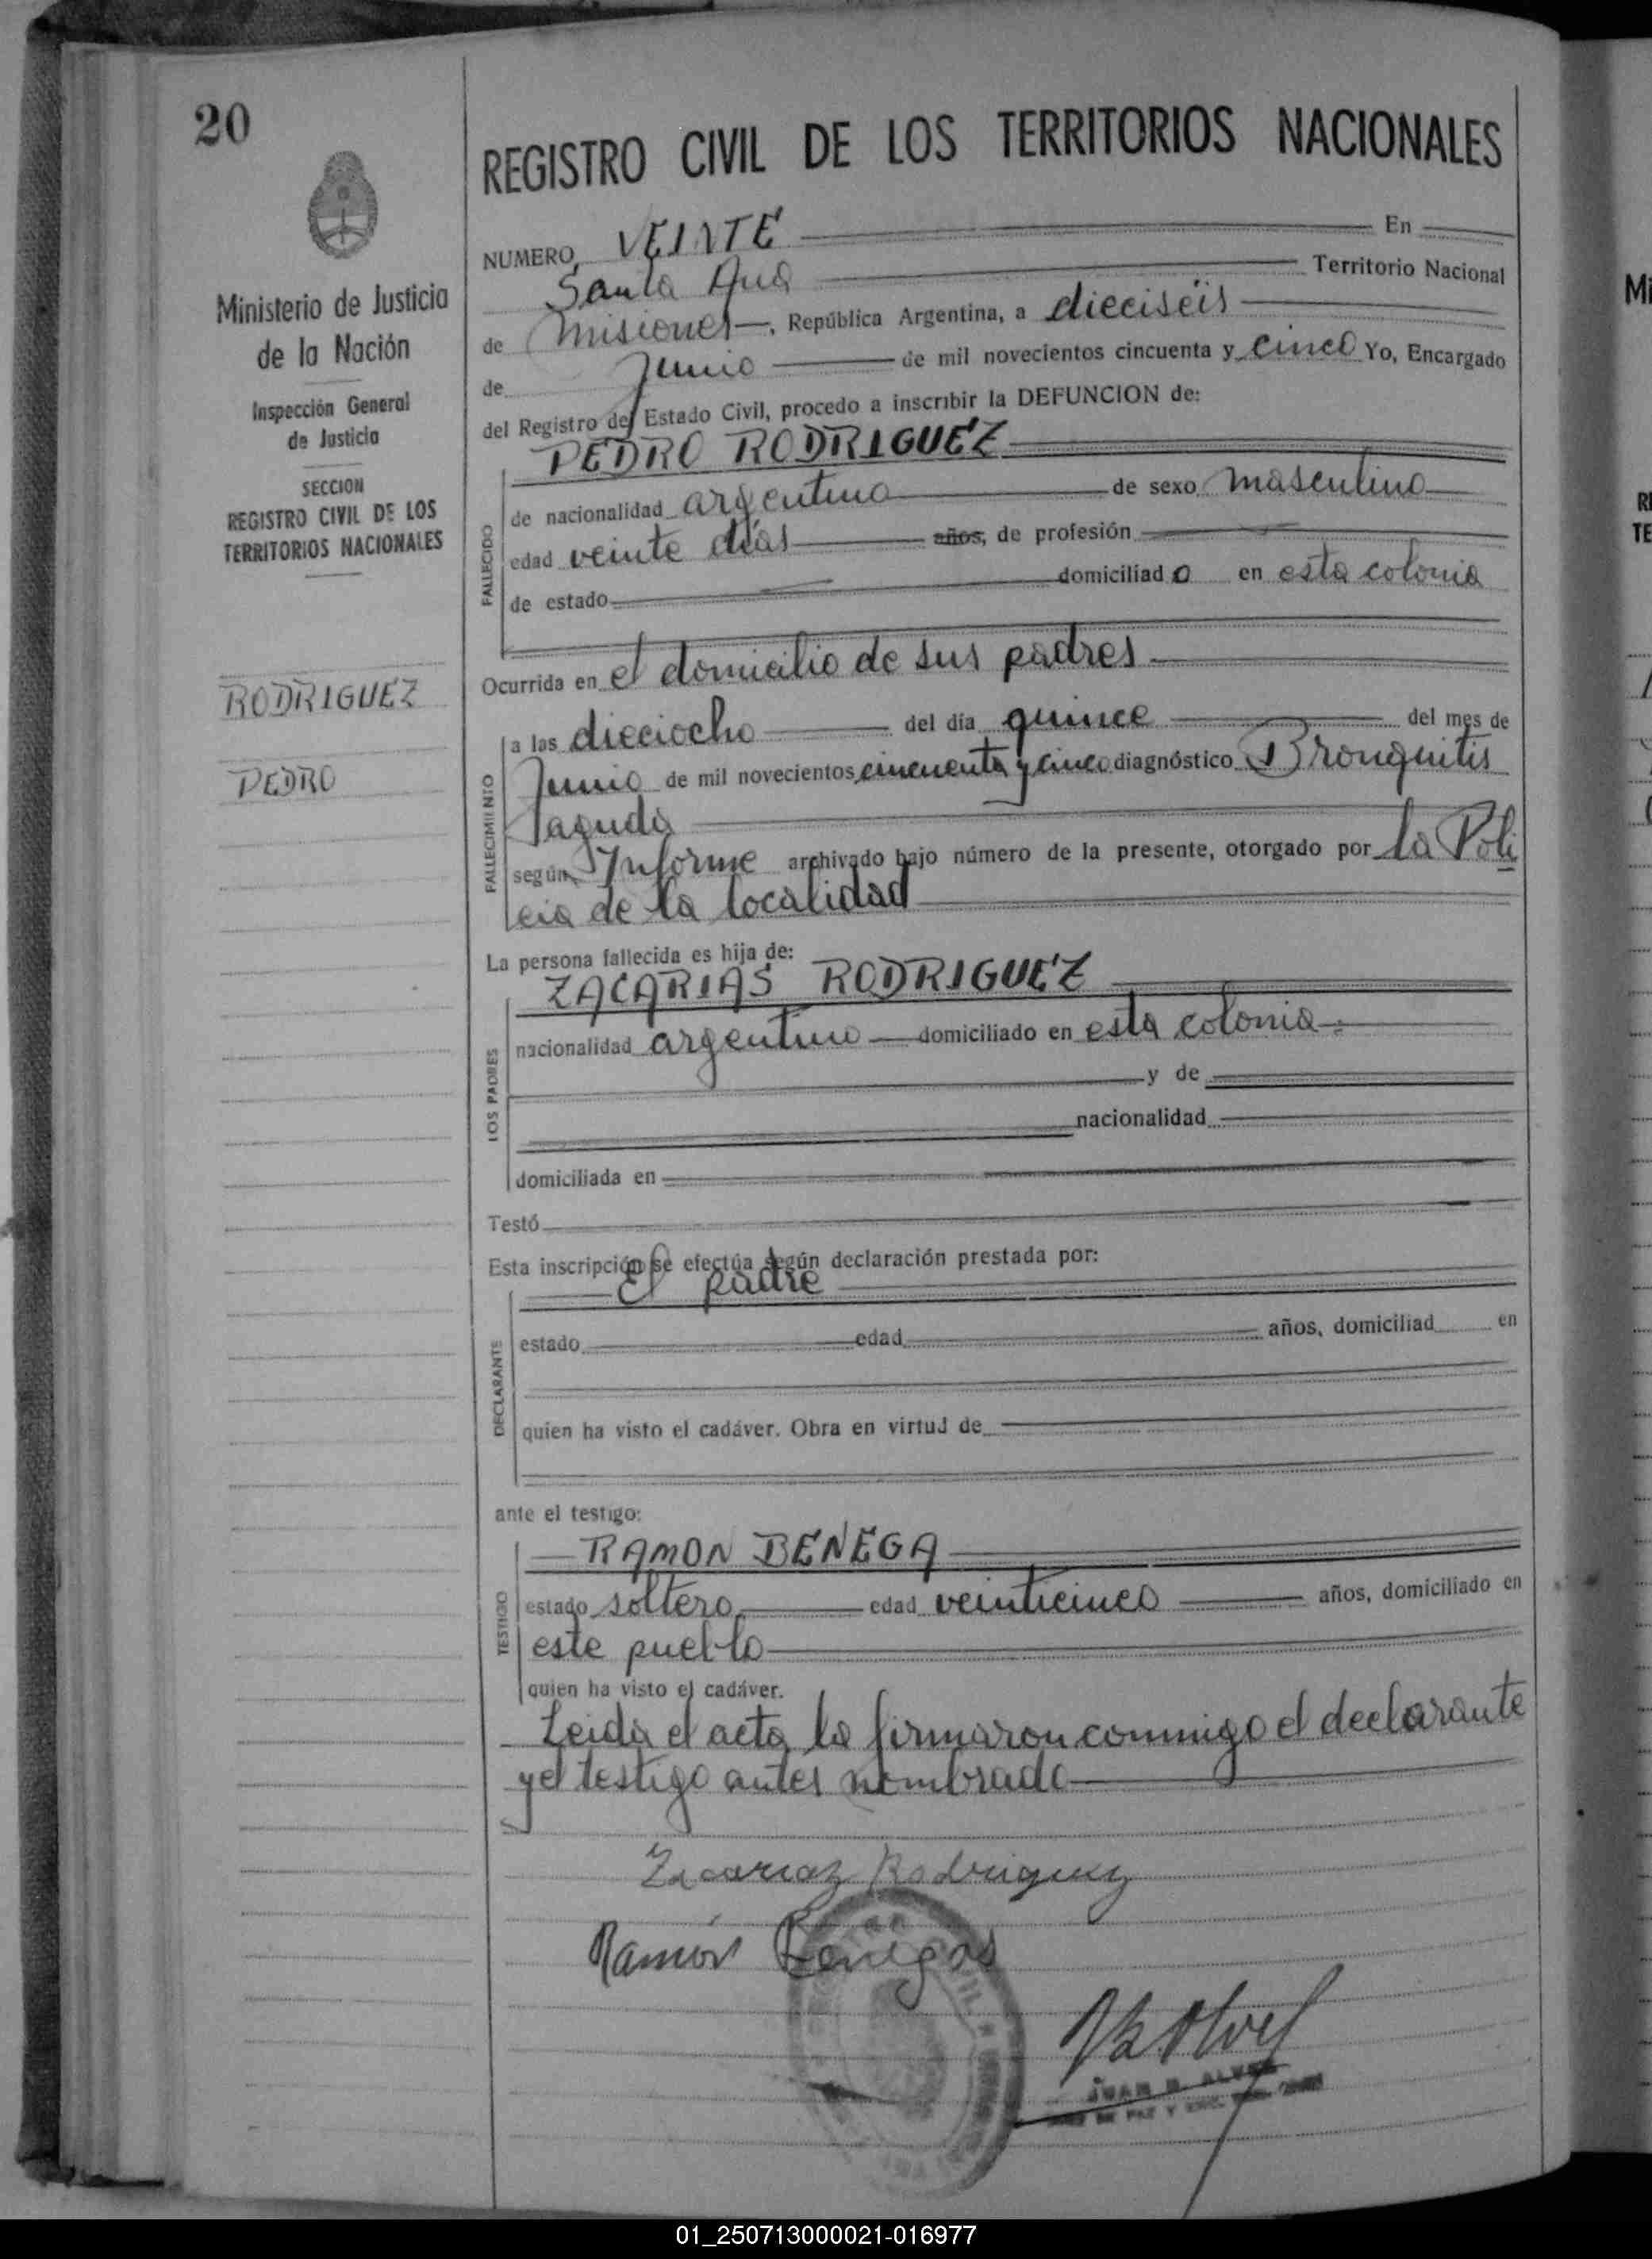 20
Ministerio de Justicia
de la Nación
Inspección General
de Justicia
SECCION
REGISTRO CIVIL DE LOS
TERRITORIOS NACIONALES
RODRIGUEZ
PEDRO
REGISTRO CIVIL DE LOS TERRITORIOS NACIONALES
NUMERO VEINTE En
Santa Ana Territorio Nacional
de Misiones, República Argentina, a dieciséis
de Junio de mil novecientos cincuenta y cinco Yo, Encargado
del Registro del Estado Civil, procedo a inscribir la DEFUNCION de:
PEDRO RODRIGUEZ
FALLECIDO
de nacionalidad argentina de sexo masculino
edad veinte días años, de profesión
de estado domiciliado en esta colonia
Ocurrida en el domicilio de sus padres
FALLECIMIENTO
a las dieciocho del día quince del mes de
Junio de mil novecientos cincuenta y cinco diagnóstico Bronquitis
aguda
según Informe archivado bajo número de la presente, otorgado por la Poli
cia de la localidad
La persona fallecida es hija de:
ZACARIAS RODRIGUEZ
LOS PADRES
nacionalidad argentino domiciliado en esta colonia
y de
nacionalidad
domiciliada en
Testó
Esta inscripción se efectúa según declaración prestada por:
El padre
DECLARANTE
estado edad años, domiciliad en
quien ha visto el cadáver. Obra en virtud de
ante el testigo:
RAMON BENEGA
TESTIGO
estado soltero edad veinticinco años, domiciliado en
este pueblo
quien ha visto el cadáver.
Leida el acta la firmaron conmigo el declarante
y el testigo antes nombrado
Zacariaz Rodriguez
Ramón Benegas
JUAN B. ALVES
DE PAZ Y ENC.
01_250713000021-016977